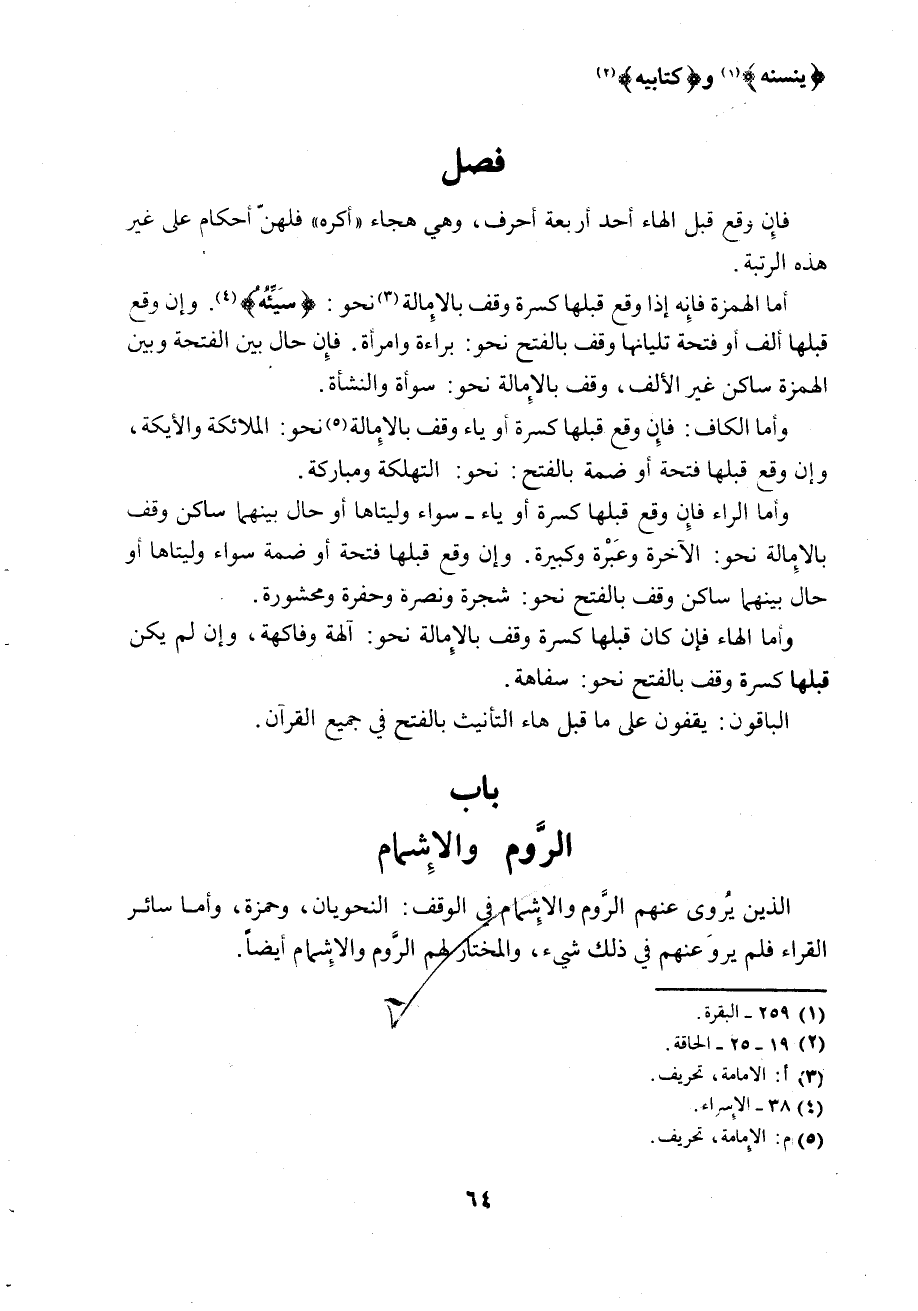 ﴿ينسنه﴾(١) و﴿كتابيه﴾(٢)
فصل
فإن وقع قبل الهاء أحد أربعة أحرف، وهي هجاء «أكره» فلهنّ أحكام على غير
هذه الرتبة.
أما الهمزة فإنه إذا وقع قبلها كسرة وقف بالإمالة(٣) نحو: ﴿سَيِّئُهُ﴾(٤). وإن وقع
قبلها ألف أو فتحة تليانها وقف بالفتح نحو: براءة وامرأة. فإن حال بين الفتحة وبين
الهمزة ساكن غير الألف، وقف بالإمالة نحو: سوأة والنشأة.
وأما الكاف: فإن وقع قبلها كسرة أو ياء وقف بالإمالة(٥) نحو: الملائكة والأيكة،
وإن وقع قبلها فتحة أو ضمة بالفتح: نحو: التهلكة ومباركة.
وأما الراء فإن وقع قبلها كسرة أو ياء ـ سواء وليتاها أو حال بينهما ساكن وقف
بالإمالة نحو: الآخرة وعَبْرة وكبيرة. وإن وقع قبلها فتحة أو ضمة سواء وليتاها أو
حال بينهما ساكن وقف بالفتح نحو: شجرة ونصرة وحفرة ومحشورة.
وأما الهاء فإن كان قبلها كسرة وقف بالإمالة نحو: آلهة وفاكهة، وإن لم يكن
قبلها كسرة وقف بالفتح نحو: سفاهة.
الباقون: يقفون على ما قبل هاء التأنيث بالفتح في جميع القرآن.
باب
الرَّوم والإشمام
الذين يُروى عنهم الرَّوم والإشمام في الوقف: النحويان، وحمزة، وأما سائر
القراء فلم يروَ عنهم في ذلك شيء، والمختار لهم الرَّوم والإشمام أيضاً.
(١) ٢٥٩ ـ البقرة.
(٢) ١٩ ـ ٢٥ ـ الحاقة.
(٣) أ: الامامة، تحريف.
(٤) ٣٨ ـ الإسراء.
(٥) م: الإمامة، تحريف.
٦٤